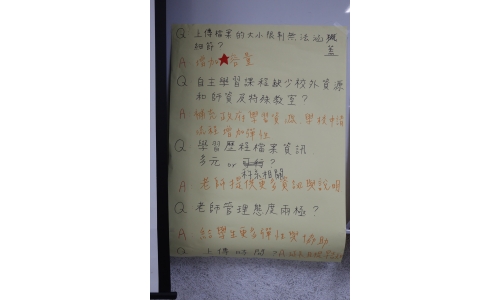 Q 上傳檔案的大小限制無法涵蓋
細節?
A 增加★容量
Q 自主學習課程缺少校外資源
和師資及特殊教室?
A 補充政府學習資源、學校申請
增加彈性
Q 學習歷程檔案資訊
多元 or
科系相關
?
A 老師提供更多資訊與說明
Q 老師管理態度兩極?
A 給學生更多彈性與協助
Q 上傳時間